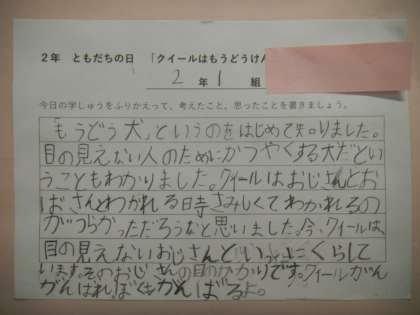 2年 ともだちの日 「クイールはもうどうけん
2年1組
今日の学しゅうをふりかえって、考えたこと、思ったことを書きましょう。
「もうどう犬」というのをはじめて知りました。
目の見えない人のためにかつやくする犬だとい
うこともわかりました。クィールはおじさんとお
ばさんとわかれる時さみしくてわかれるの
がつらかっただろうなと思いました。今、クィールは、
目の見えないおじさんといっしょにくらして
います。そのおじさんの目のかかりです。クィールがん
がんばれ。ぼくもがんばるよ。